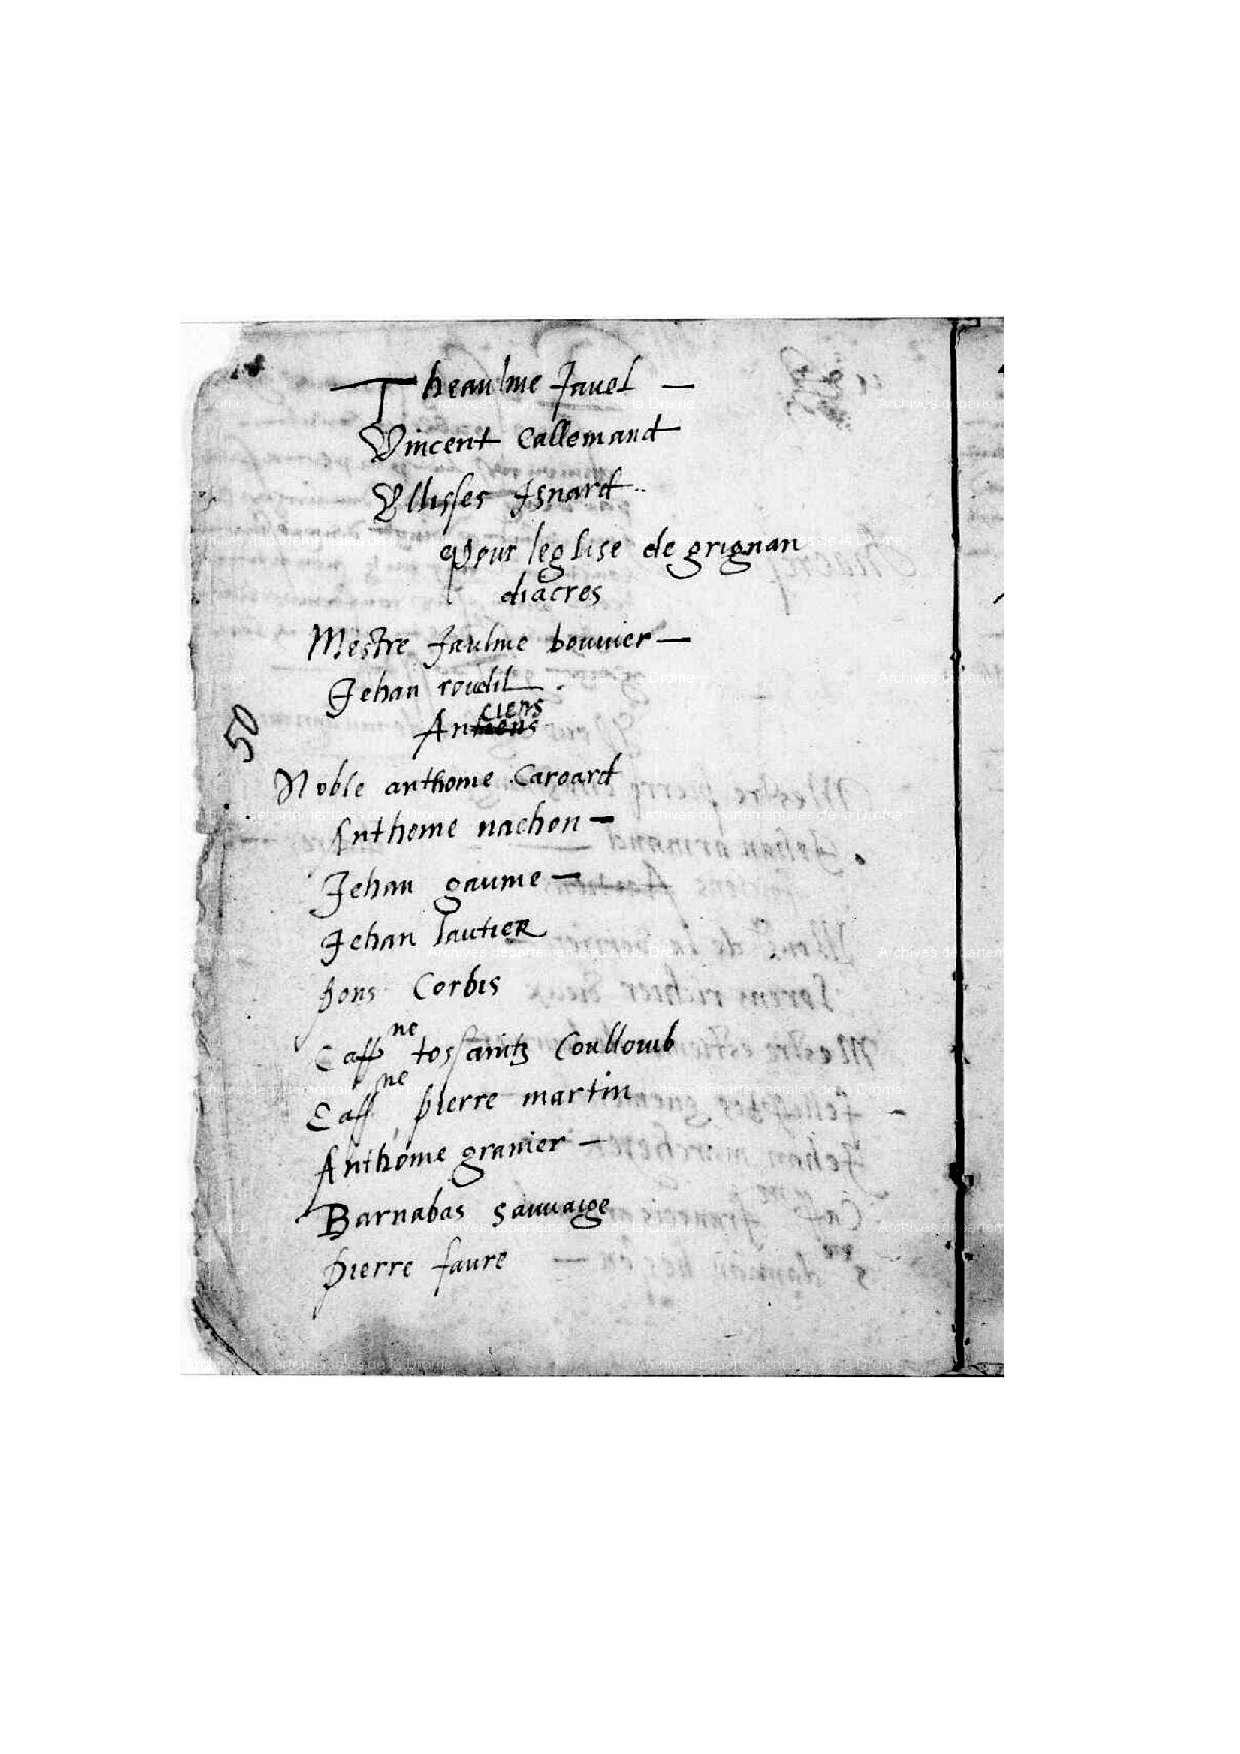 Theaulme Javel —
Vincent Callemand
Ullisses Isnard..
Pour leglise de grignan
diacres
Mestre Jaulme bouvier —
Jehan roudil
ciens
Antiens
50
Noble anthome Caroard
Anthome nachon —
Jehan gaume —
Jehan lautier
pons Corbis
Capp ne tossaintz Coullomb
Capp ne pierre martin
Anthome granier —
Barnabas Sauvaige
pierre faure
Archives départementales de la Drôme